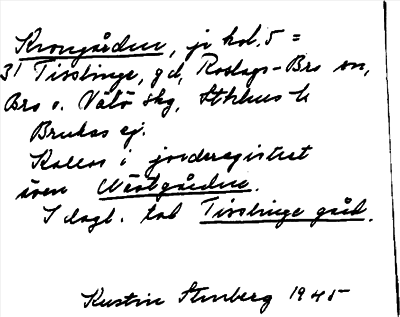 Krongården, jr kol. 5 =
3¹ Tisslinge, gd, Roslags-Bro sn,
Bro o. Vätö skg, Sthlms l.
Brukas ej.
Kallas i jorderegistret
även Västgården.
I dagl. tal Tisslinge gård.
Kerstin Stenberg 1945